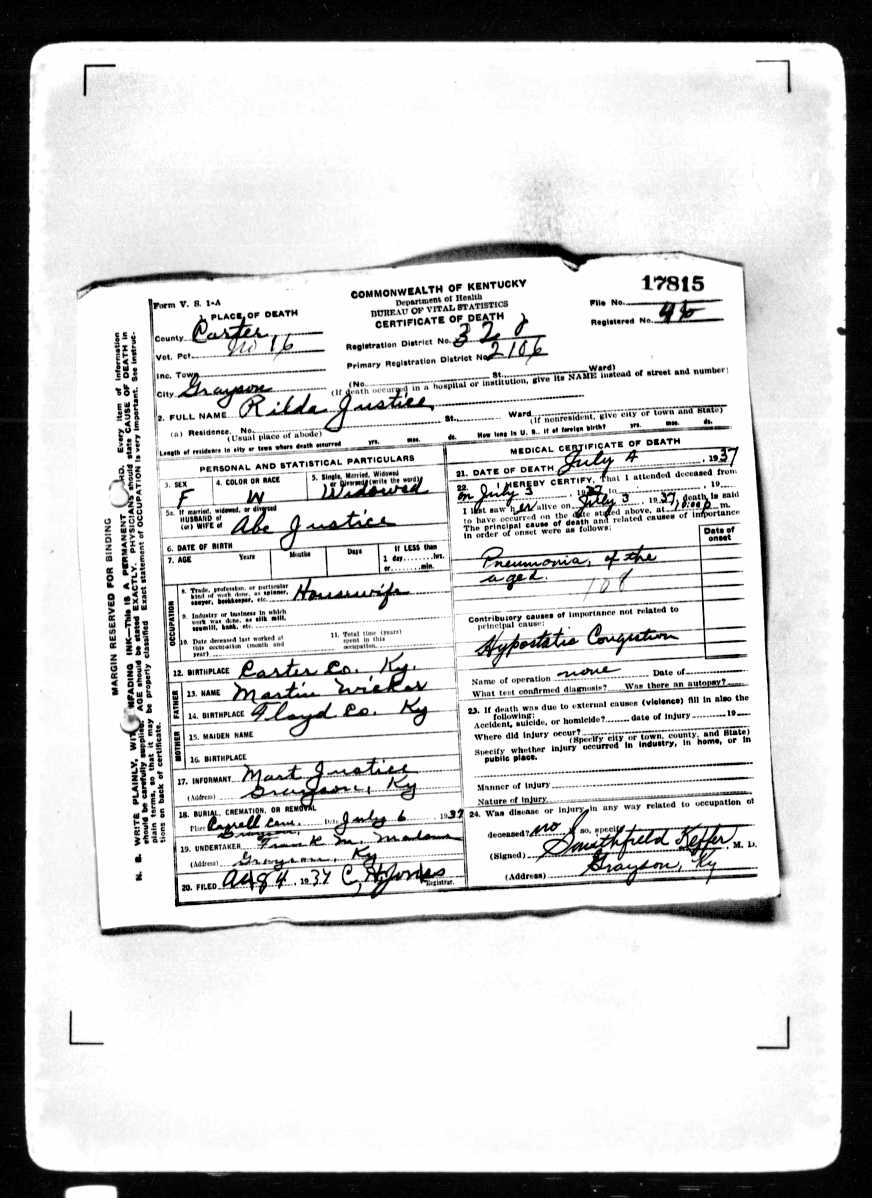 17815
Form V. S. 1-A
COMMONWEALTH OF KENTUCKY
Department of Health
BUREAU OF VITAL STATISTICS
CERTIFICATE OF DEATH
File No.
Registered No.
PLACE OF DEATH
County Carter
Vot. Pct. No 16
Registration District No.
Primary Registration District No. 2106
Inc. Town
City Grayson (No. St. Ward)
(If death occurred in a hospital or institution, give its NAME instead of street and number)
2. FULL NAME Rilda Justice
(a) Residence. No. St., Ward
(Usual place of abode) (If nonresident, give city or town and State)
Length of residence in city or town where death occurred yrs. mos. ds. How long in U. S., if of foreign birth? yrs. mos. ds.
PERSONAL AND STATISTICAL PARTICULARS
3. SEX F
4. COLOR OR RACE W
5. Single, Married, Widowed or Divorced (write the word) Widowed
5a. If married, widowed, or divorced
HUSBAND of
(or) WIFE of Abe Justice
6. DATE OF BIRTH
7. AGE Years Months Days If LESS than
1 day........hrs.
or........min.
OCCUPATION
8. Trade, profession, or particular
kind of work done, as spinner,
sawyer, bookkeeper, etc. Housewife
9. Industry or business in which
work was done, as silk mill,
sawmill, bank, etc.
10. Date deceased last worked at
this occupation (month and
year)
11. Total time (years)
spent in this
occupation
12. BIRTHPLACE Carter Co. Ky.
FATHER
13. NAME Martin
14. BIRTHPLACE Floyd Co. Ky
MOTHER
15. MAIDEN NAME
16. BIRTHPLACE
17. INFORMANT Mart Justice
(Address) Grayson, Ky
18. BURIAL, CREMATION, OR REMOVAL
Place Cem. Date July 6, 1937
Grayson,
19. UNDERTAKER Frank M.
(Address) Grayson, Ky
20. FILED Aug 4, 1937 C. H. Jones
Registrar.
MEDICAL CERTIFICATE OF DEATH
21. DATE OF DEATH July 4, 1937
22. I HEREBY CERTIFY, That I attended deceased from
on July 3, 1937 to , 19
I last saw her alive on July 3, 1937, death is said
to have occurred on the date stated above, at 1,0:00 p m.
The principal cause of death and related causes of importance
in order of onset were as follows:
Date of
onset
Pneumonia, of the
aged.
108
Contributory causes of importance not related to
principal cause:
Hypostatic Congestion
Name of operation none Date of
What test confirmed diagnosis? Was there an autopsy?
23. If death was due to external causes (violence) fill in also the
following:
Accident, suicide, or homicide? date of injury 19
Where did injury occur?
(Specify city or town, county, and State)
Specify whether injury occurred in industry, in home, or in
public place.
Manner of injury
Nature of injury
24. Was disease or injury in any way related to occupation of
deceased? no If so, specify
(Signed) Smithfield Keffer, M. D.
(Address) Grayson, Ky
MARGIN RESERVED FOR BINDING
N. B. WRITE PLAINLY, WITH UNFADING INK—THIS IS A PERMANENT RECORD. Every item of information
should be carefully supplied. AGE should be stated EXACTLY. PHYSICIANS should state CAUSE OF DEATH in
plain terms, so that it may be properly classified. Exact statement of OCCUPATION is very important. See instruc-
tions on back of certificate.